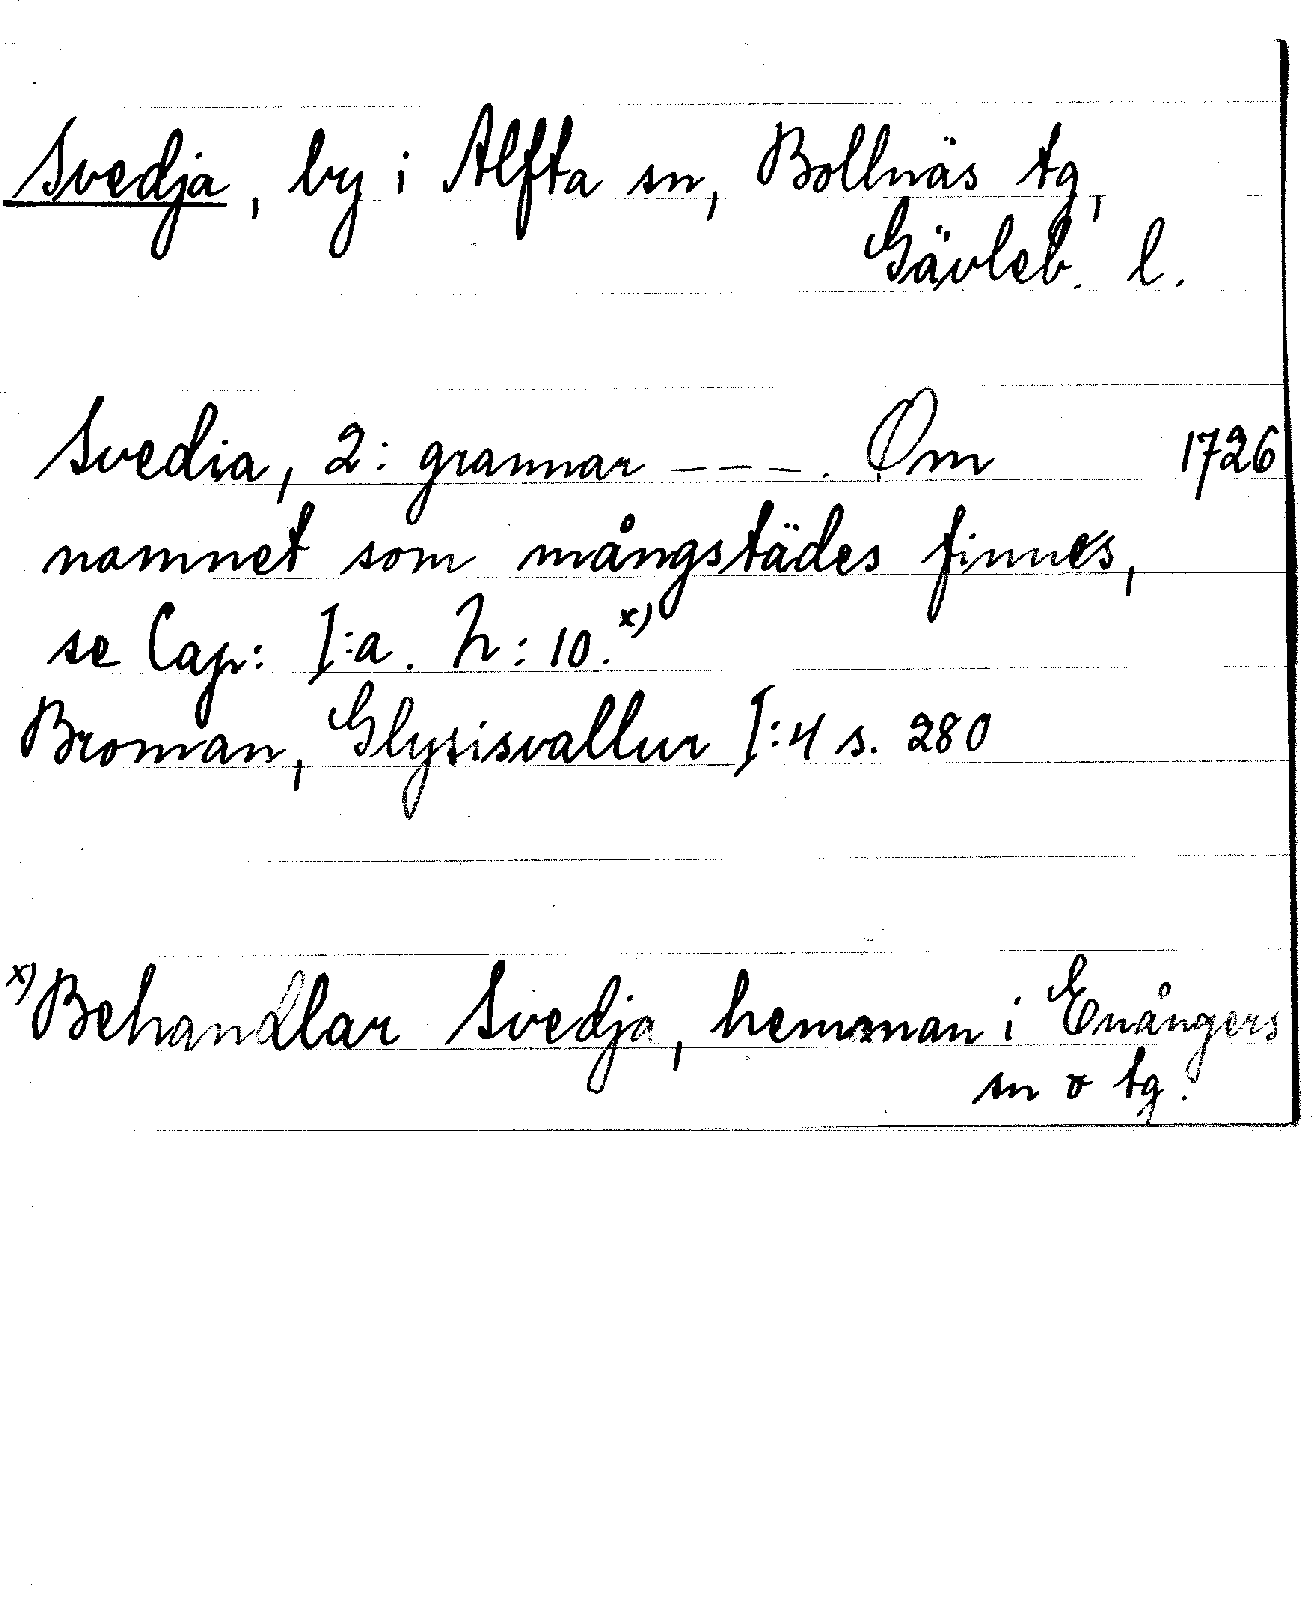 Svedja, by i Alfta sn, Bollnäs tg,
Gävleb. l.
Svedia, 2: grannar ---. Om 1726
namnet som mångstädes finnes,
se Cap: I:a. h: 10.x)
Broman, Glysisvallur I:4 s. 280
x) Behandlar Svedja, hemman i Enångers
sn o tg.